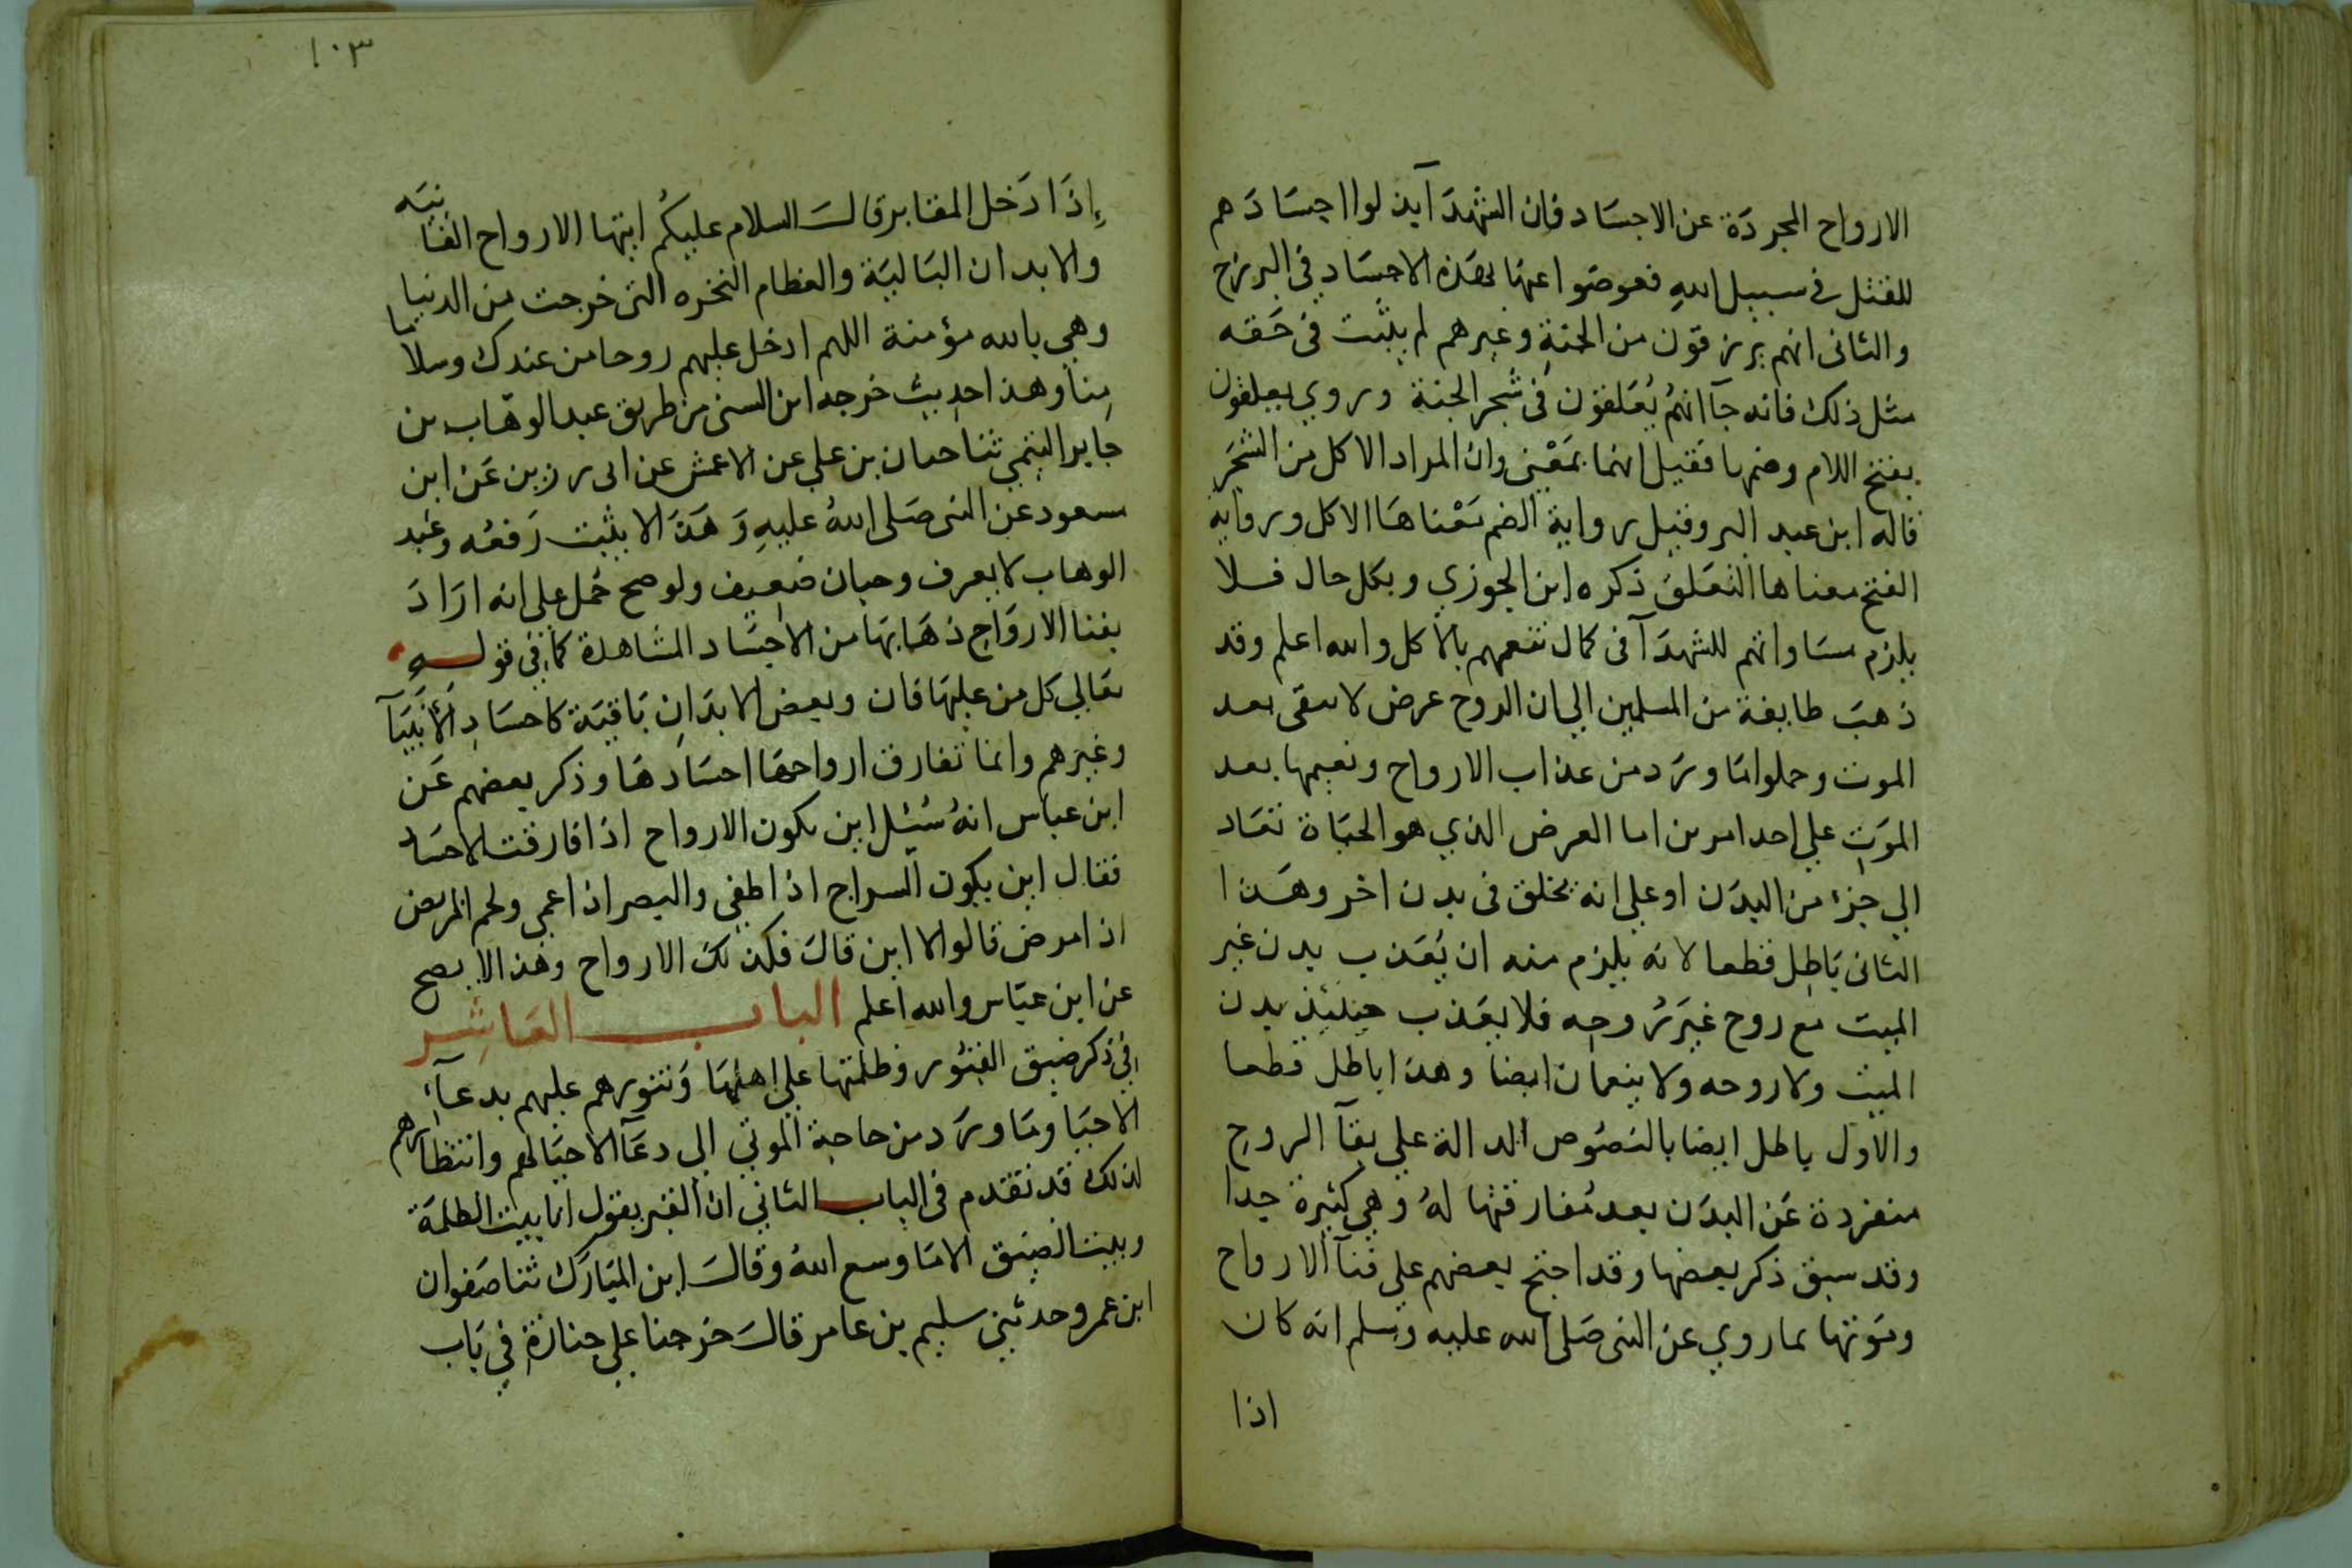 الارواح المجردة عن الاجساد فان الشهدآ بذلوا اجسادهم
للقتل في سبيل الله فعوضوا عنها بهذه الاجساد في البرزخ
والثاني انهم يرزقون من الجنة وغيرهم لم يثبت في حقه
مثل ذلك فانه جآ انهم يُعَلقون في شجر الجنة وروي يعلقون
بفتح اللام وضمها فقيل انهما بمعْنى وان المراد الاكل من الشجر
قاله ابن عبد البر وقيل رواية الضم معْناها الاكل ورواية
الفتح معناها التعلق ذكره ابن الجوزي وبكل حال فلا
يلزم مساواتهم للشهدآ في كمال تنعمهم بالاكل والله اعلم وقد
ذهب طايفة من المسلمين الي ان الروح عرض لا تبقى بعد
الموت وحملوا ما ورد من عذاب الارواح ونعيمها بعد
الموت علي احد امرين اما العرض الذي هو الحياة تعاد
الي جزء من البدن او علي انه يخلق في بدن اخر وهذا
الثاني باطل قطعا لانه يلزم منه ان يُعَذب بدن غير
الميت مع روح غير رُوحه فلا يعَذب حينئذ بدن
الميت ولا روحه ولا ينعمان ايضا وهذا باطل قطعا
والاول باطل ايضا بالنصُوص الدالة علي بقآ الروح
منفردة عَن البدَن بعد مُفارقتها لهُ وهي كثيرة جدا
وقد سبق ذكر بعضها وقد احتج بعضهم علي فنآ الارواح
وموتها بما روي عن النبى صَلى الله عليه وسلم انه كان
اذا
١٠٣
إذَا دَخل المقابر قال السلام عليكُم ايتها الارواح الفانيَه
والابدان البَاليَة والعظام النخره التي خرجت من الدنيا
وهي بالله مؤمنة اللهم ادخل عليهم روحا من عندك وسلاما
مِنا وهذا حديث خرجه ابن السني من طريق عبد الوهَّاب بن
جَابر التيمي ثنا حبان بن علي عن الاعمش عن ابى رزين عَن ابن
مسعود عن النبى صَلى اللهُ عليهِ وَهَذا لا يثبت رَفعُه وعَبد
الوهاب لا يعرف وحبان ضَعيف ولو صح حُمل علي انه ارَادَ
بفنا الارواح ذهَابهَا من الاجسَاد المشاهدة كما في قوله
تعَالي كل من عليهَا فان وبعض الابدَانِ بَاقيَة كاجسَادِ الأنبيَآ
وغيرهم وانما تفارق ارواحهَا اجسَادهَا وذكر بعضهم عَن
ابن عباس انهُ سُئِل اين تكون الارواح اذا فارقت الاجسَاد
فقال اين يكون السراج اذا طفي والبصر اذا عمي ولحم المريض
اذا مرض قالوا لا اين قال فكذلك الارواح وهذا لا يصح
عن ابن عبَّاس والله اعلم الباب العَاشر
في ذكر ضيق القبُور وظلمتها علي اهلهَا وَتنورهم عليهم بدعآء
الاحيَا ومَا ورَد من حاجة الموتي الي دعَآ الاحيَا لهم وانتظارهم
لذلك قد تقدم في الباب الثاني ان القبر يقول انا بيت الظلمَة
وبيت الضيق الا مَا وسع اللهُ وقالَ ابن المبَارَك ثنا صَفوان
ابن عمرو حدثني سليم بن عامر قالَ خرجنا علي جنازَة في بَاب